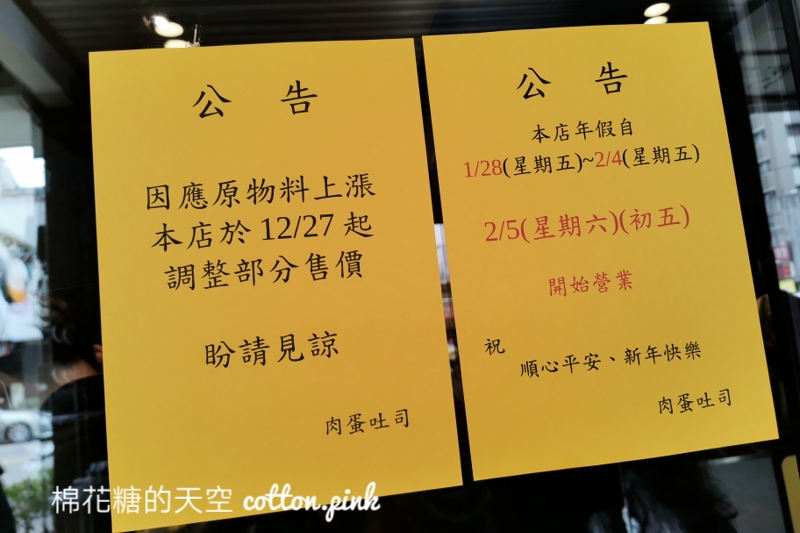 公 告
因應原物料上漲
本店於 12/27 起
調整部分售價
盼請見諒
肉蛋吐司
公 告
本店年假自
1/28(星期五)~2/4(星期五)
2/5(星期六)(初五)
開始營業
祝
順心平安、新年快樂
肉蛋吐司
棉花糖的天空 cotton.pink